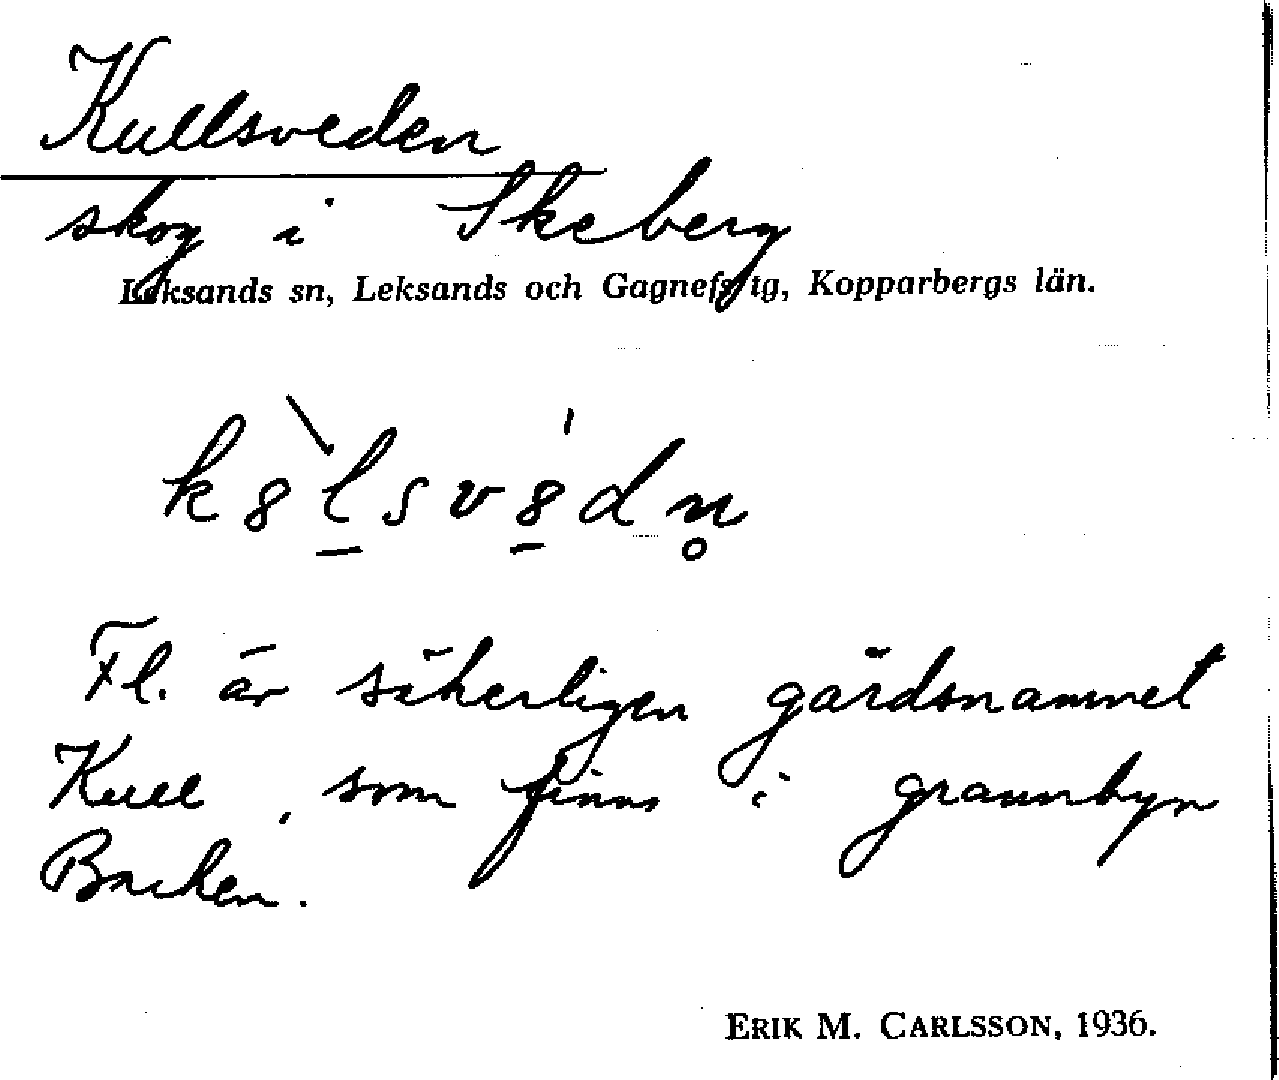 Kullsveden
skog i Skeberg
Leksands sn, Leksands och Gagnefs tg, Kopparbergs län.
k8̀l̠sv8̠́dn̥
Fl. är säkerligen gårdsnamnet
Kull, som finns i grannbyn
Backen.
ERIK M. CARLSSON, 1936.